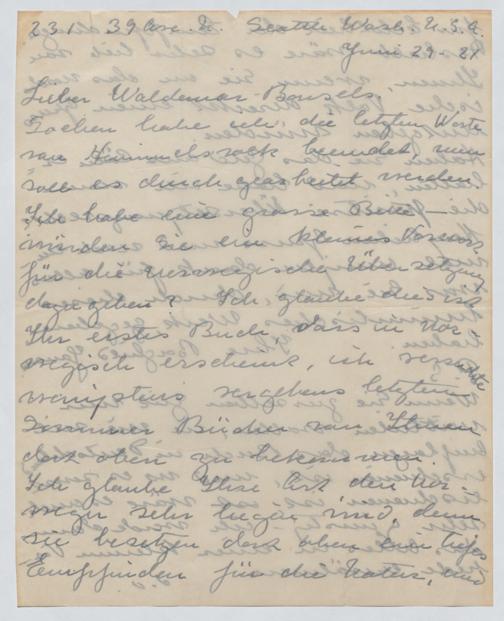 231 39 Ave. N. Seattle Wash. U.S.A.
Juni 29 - 27
Lieber Waldemar Bonsels,
Soeben habe ich die letzten Worte
von Himmelsvolk beendet, nun
soll es durchgearbeitet werden.
Ich habe eine grosse Bitte —
würden Sie ein kleines Vorwort
für die norwegische Übersetzung
dazu geben? Ich glaube dies ist
Ihr erstes Buch, dass in Nor-
wegisch erscheint, ich versuchte
wenigstens vergebens letzten
Sommer Bücher von Ihnen
dort oben zu bekommen.
Ich glaube Ihre Art den Nor-
weger sehr liegen wird, denn
sie besitzen dort oben ein tiefes
Empfinden für die Natur, und